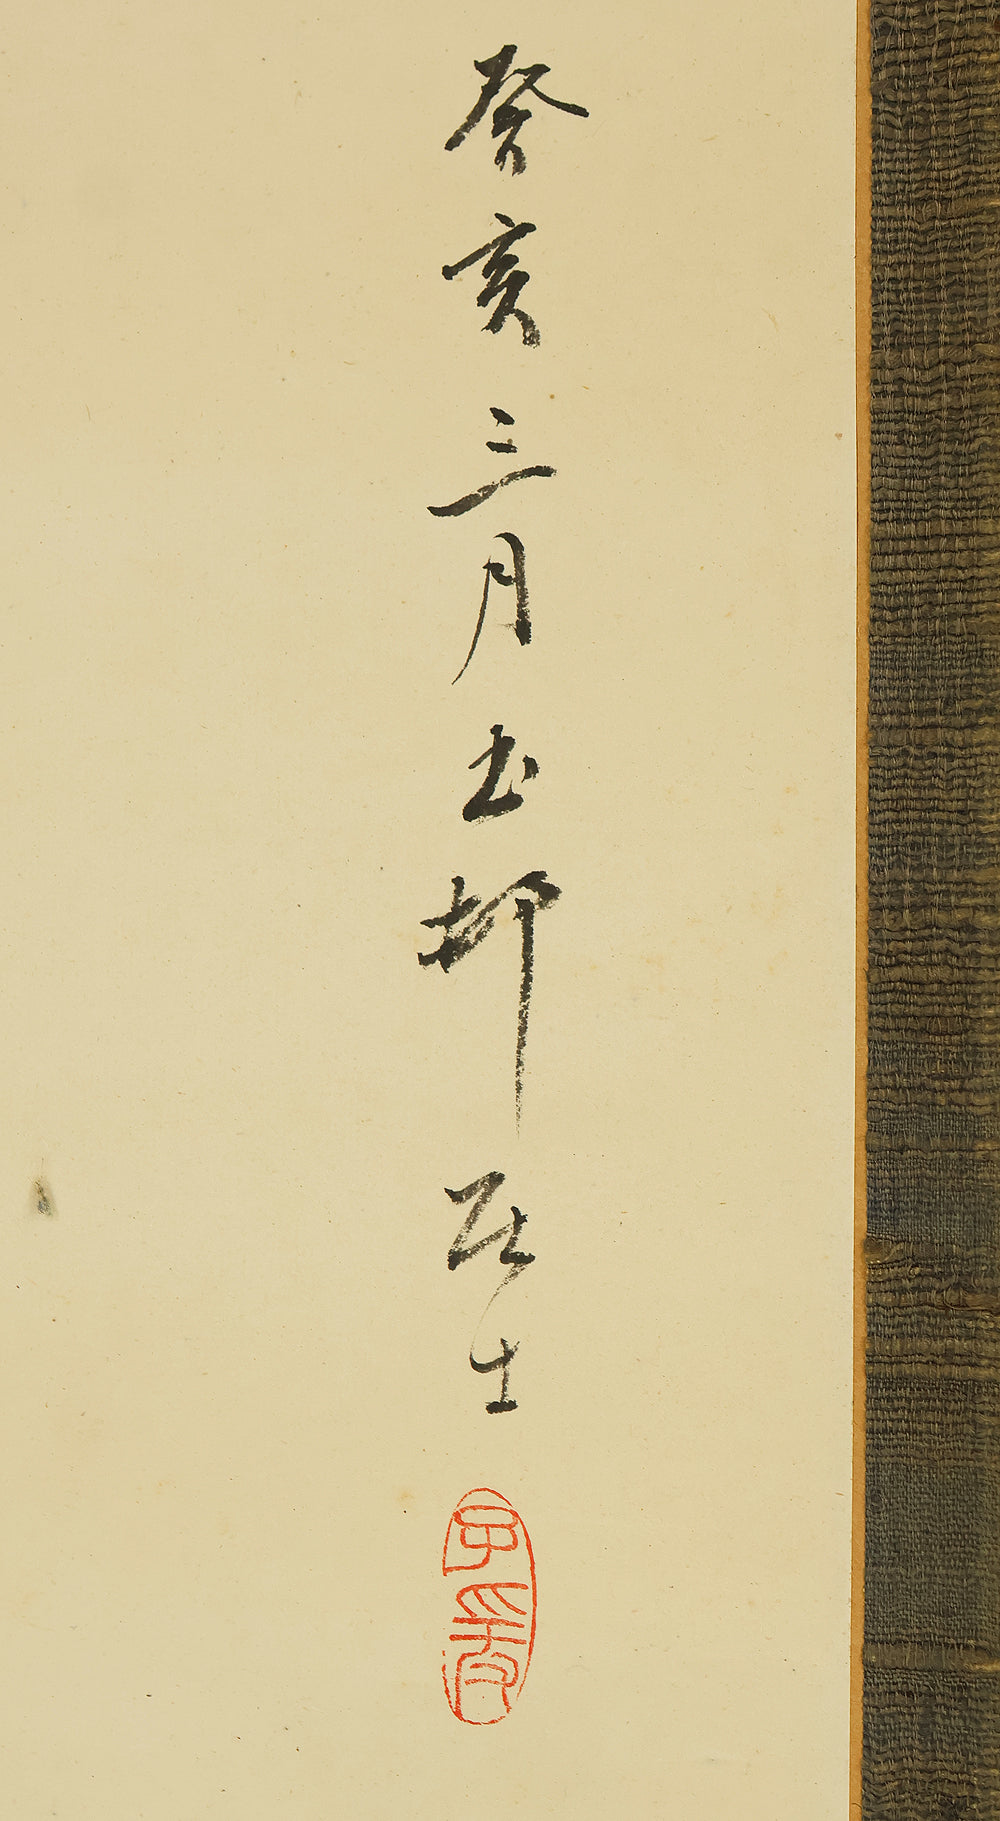 癸亥三月玉邨居士